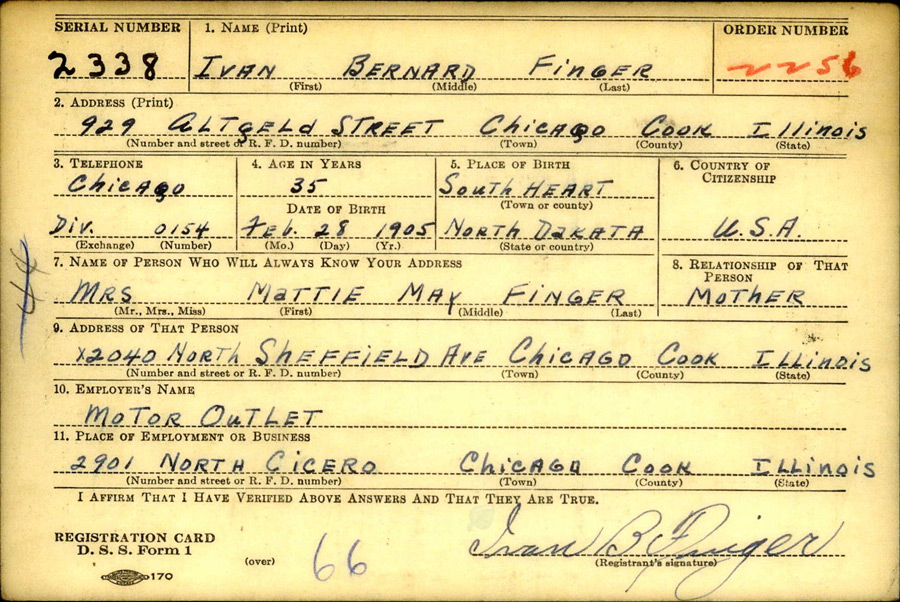 SERIAL NUMBER 1. NAME (Print) ORDER NUMBER
2338 IVAN BERNARD FINGER 2256
(First) (Middle) (Last)
2. ADDRESS (Print)
929 ALTGELD STREET Chicago Cook Illinois
(Number and street or R. F. D. number) (Town) (County) (State)
3. TELEPHONE 4. AGE IN YEARS 5. PLACE OF BIRTH 6. COUNTRY OF
CITIZENSHIP
Chicago 35 SOUTH HEART
DATE OF BIRTH (Town or county)
Div. 0154 Feb. 28 1905 NORTH DAKATA U.S.A.
(Exchange) (Number) (Mo.) (Day) (Yr.) (State or country)
7. NAME OF PERSON WHO WILL ALWAYS KNOW YOUR ADDRESS 8. RELATIONSHIP OF THAT
PERSON
MRS MATTIE MAY FINGER MOTHER
(Mr., Mrs., Miss) (First) (Middle) (Last)
9. ADDRESS OF THAT PERSON
x2040 North SHEFFIELD AVE CHICAGO COOK ILLINOIS
(Number and street or R. F. D. number) (Town) (County) (State)
10. EMPLOYER'S NAME
MOTOR OUTLET
11. PLACE OF EMPLOYMENT OR BUSINESS
2901 NORTH CICERO CHICAGO COOK ILLINOIS
(Number and street or R. F. D. number) (Town) (County) (State)
I AFFIRM THAT I HAVE VERIFIED ABOVE ANSWERS AND THAT THEY ARE TRUE.
REGISTRATION CARD
D. S. S. Form 1
Ivan B Finger
(over) 66 (Registrant's signature)
170